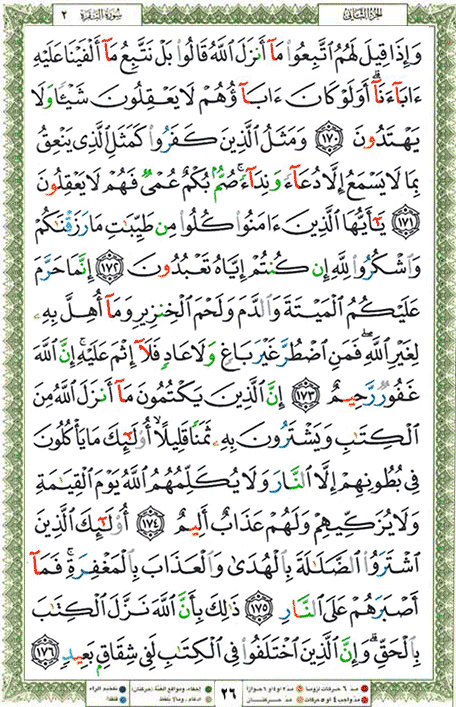 الجزء الثاني
سورة البقرة ٢
وَإِذَا قِيلَ لَهُمُ ٱتَّبِعُوا۟ مَآ أَنزَلَ ٱللَّهُ قَالُوا۟ بَلْ نَتَّبِعُ مَآ أَلْفَيْنَا عَلَيْهِ
ءَابَآءَنَآ ۗ أَوَلَوْ كَانَ ءَابَآؤُهُمْ لَا يَعْقِلُونَ شَيْـًٔا وَلَا
يَهْتَدُونَ ١٧٠ وَمَثَلُ ٱلَّذِينَ كَفَرُوا۟ كَمَثَلِ ٱلَّذِى يَنْعِقُ
بِمَا لَا يَسْمَعُ إِلَّا دُعَآءً وَنِدَآءً ۚ صُمٌّۢ بُكْمٌ عُمْىٌ فَهُمْ لَا يَعْقِلُونَ
١٧١ يَـٰٓأَيُّهَا ٱلَّذِينَ ءَامَنُوا۟ كُلُوا۟ مِن طَيِّبَـٰتِ مَا رَزَقْنَـٰكُمْ
وَٱشْكُرُوا۟ لِلَّهِ إِن كُنتُمْ إِيَّاهُ تَعْبُدُونَ ١٧٢ إِنَّمَا حَرَّمَ
عَلَيْكُمُ ٱلْمَيْتَةَ وَٱلدَّمَ وَلَحْمَ ٱلْخِنزِيرِ وَمَآ أُهِلَّ بِهِۦ
لِغَيْرِ ٱللَّهِ ۖ فَمَنِ ٱضْطُرَّ غَيْرَ بَاغٍ وَلَا عَادٍ فَلَآ إِثْمَ عَلَيْهِ ۚ إِنَّ ٱللَّهَ
غَفُورٌ رَّحِيمٌ ١٧٣ إِنَّ ٱلَّذِينَ يَكْتُمُونَ مَآ أَنزَلَ ٱللَّهُ مِنَ
ٱلْكِتَـٰبِ وَيَشْتَرُونَ بِهِۦ ثَمَنًا قَلِيلًا ۙ أُو۟لَـٰٓئِكَ مَا يَأْكُلُونَ
فِى بُطُونِهِمْ إِلَّا ٱلنَّارَ وَلَا يُكَلِّمُهُمُ ٱللَّهُ يَوْمَ ٱلْقِيَـٰمَةِ
وَلَا يُزَكِّيهِمْ وَلَهُمْ عَذَابٌ أَلِيمٌ ١٧٤ أُو۟لَـٰٓئِكَ ٱلَّذِينَ
ٱشْتَرَوُا۟ ٱلضَّلَـٰلَةَ بِٱلْهُدَىٰ وَٱلْعَذَابَ بِٱلْمَغْفِرَةِ ۚ فَمَآ
أَصْبَرَهُمْ عَلَى ٱلنَّارِ ١٧٥ ذَٰلِكَ بِأَنَّ ٱللَّهَ نَزَّلَ ٱلْكِتَـٰبَ
بِٱلْحَقِّ ۗ وَإِنَّ ٱلَّذِينَ ٱخْتَلَفُوا۟ فِى ٱلْكِتَـٰبِ لَفِى شِقَاقٍۭ بَعِيدٍ ١٧٦
مدّ ٦ حركات لزوماً مدّ ٢ أو ٤ أو ٦ جوازاً
مدّ واجب ٤ أو ٥ حركات مدّ حركتان
٢٦
إخفاء، ومواقع الغنّة (حركتان) تفخيم الراء
إدغام، وما لا يلفظ قلقلة